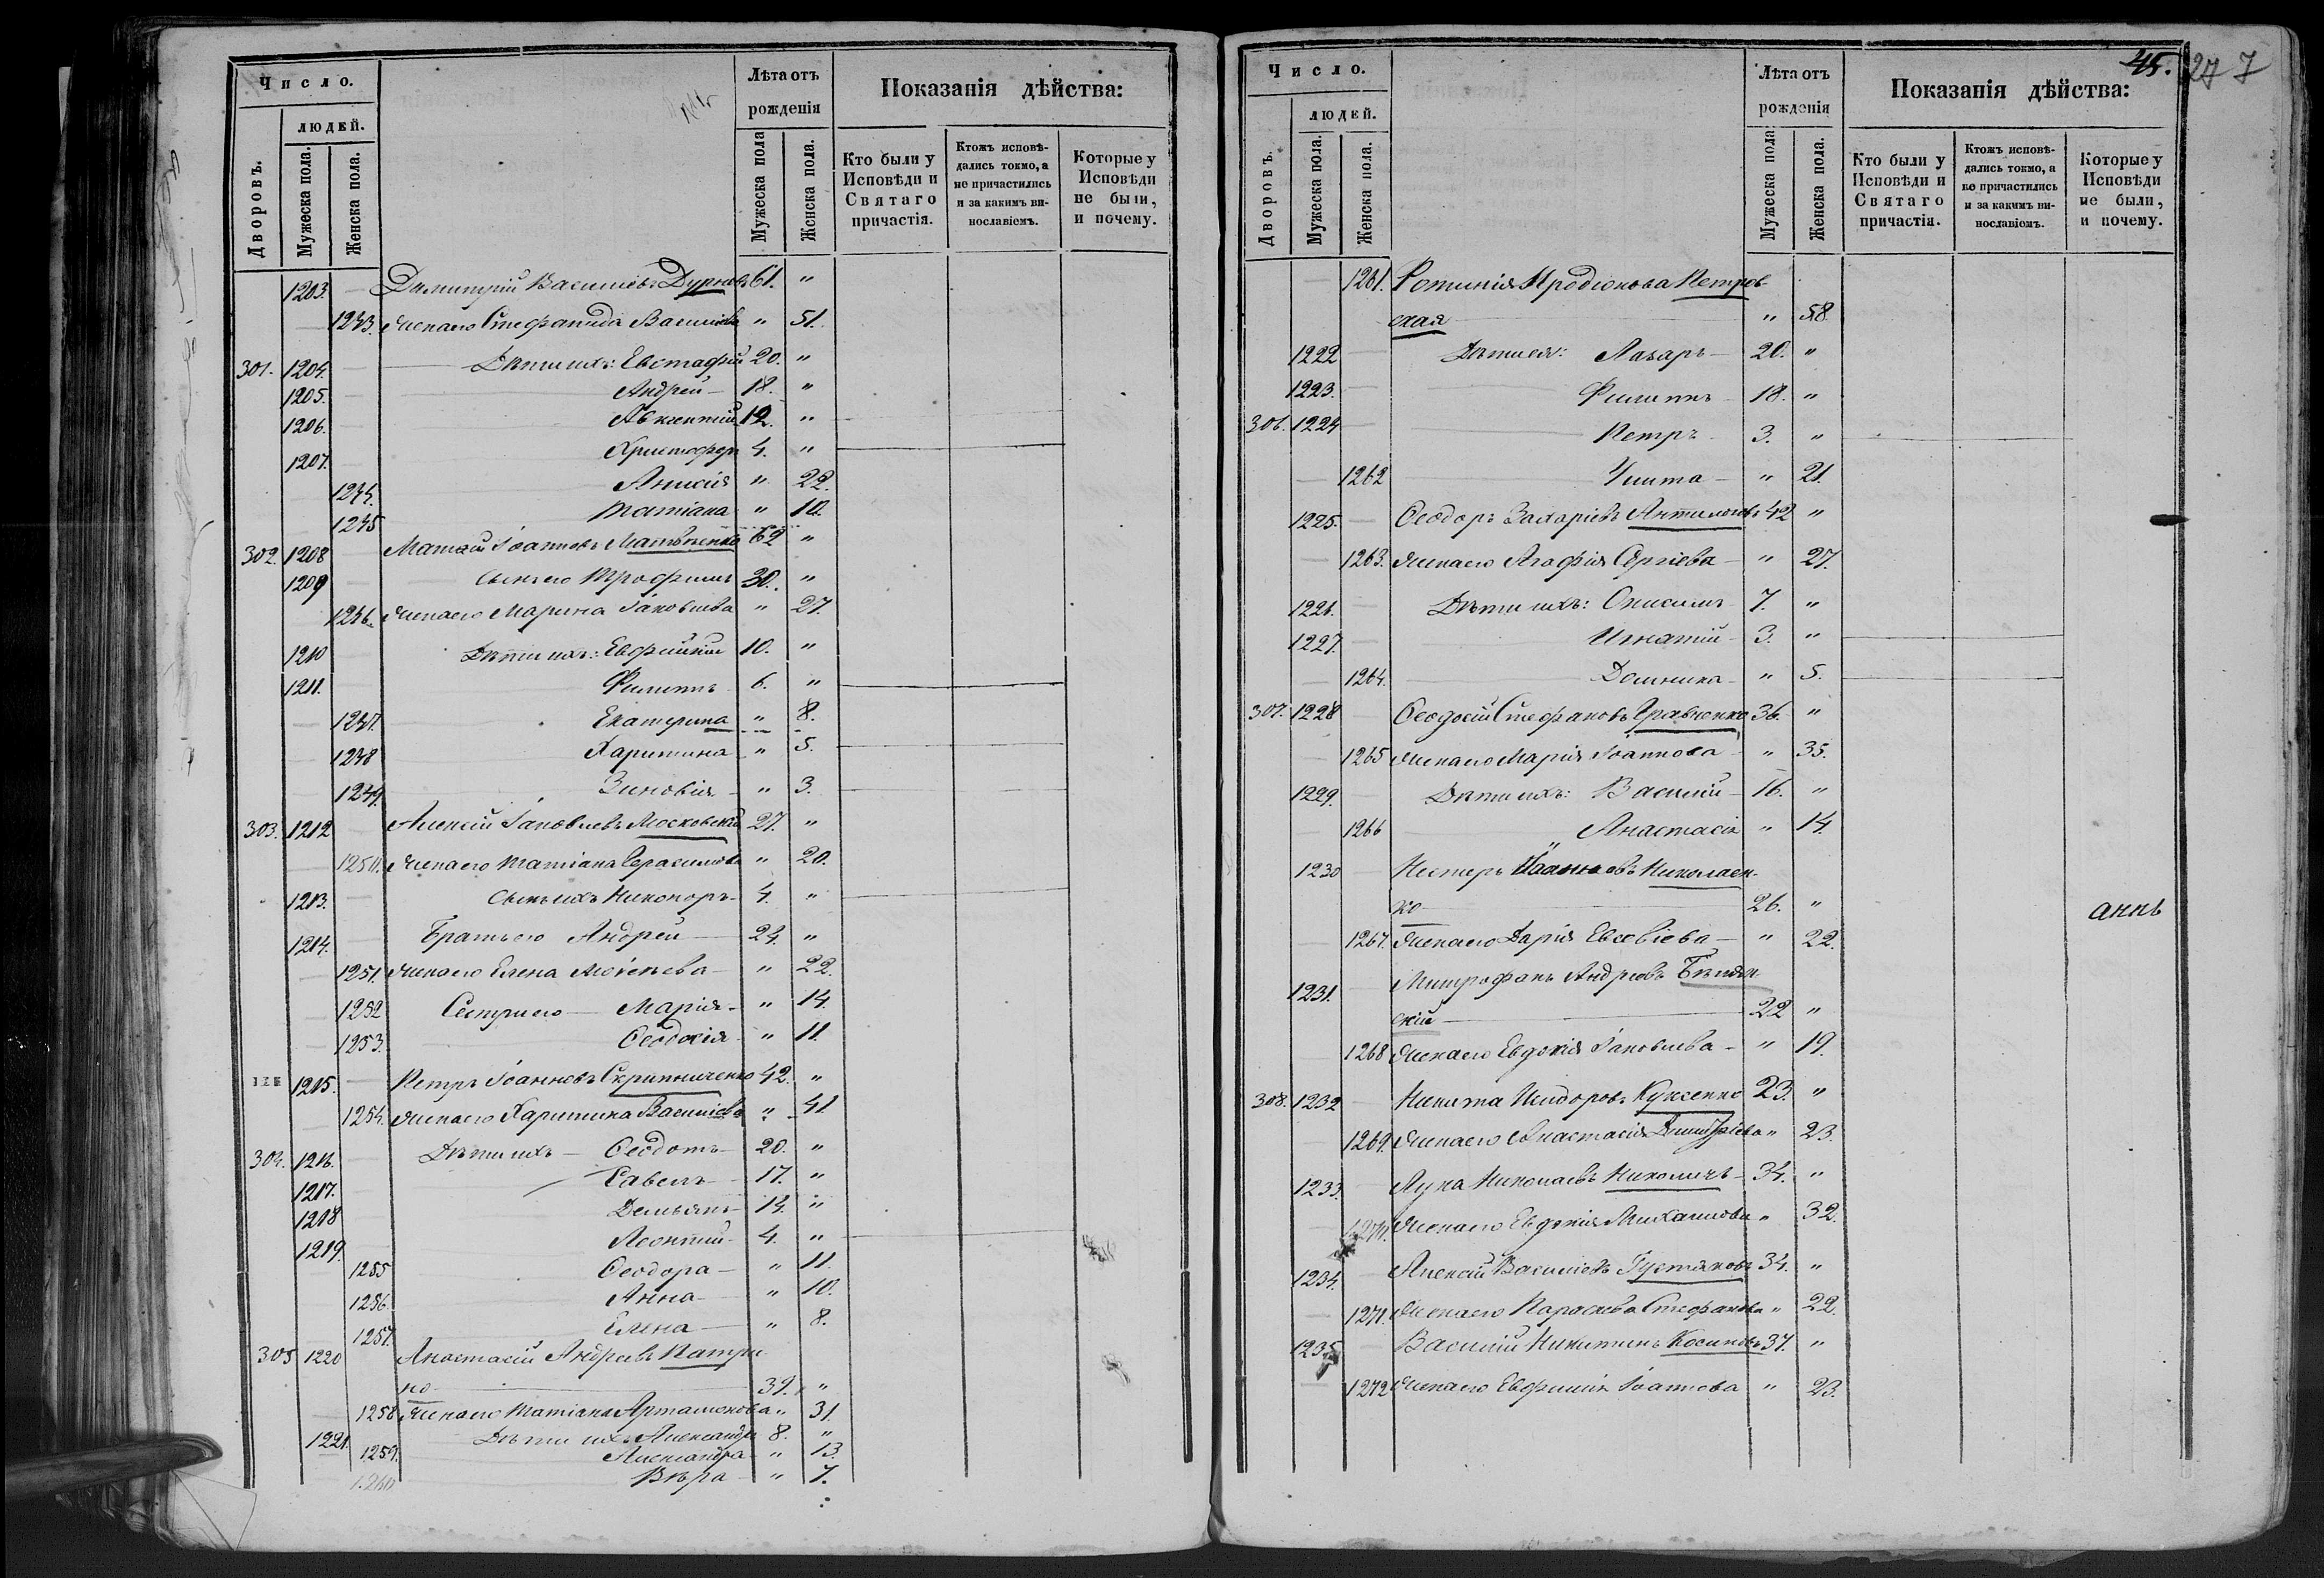 Число.
людей.
Дворовъ.
Мужеска пола.
Женска пола.
Лѣта отъ
рожденія
Мужеска пола
Женска пола.
Показанія дѣйства:
Кто были у
Исповѣди и
Святаго
причастія.
Ктожъ исповѣ-
дались токмо, а
не причастились
и за какимъ ви-
нословіемъ.
Которые у
Исповѣди
не были,
и почему.
1203. Димитрій Василіевъ Дурневъ 61. "
1243. Жена его Стефанида Василіева " 51.
301. 1204. Дѣти ихъ: Евстафій 20. "
1205. Андрей 18. "
1206. Авксентій 12. "
1207. Христофоръ 4. "
1244. Анисія " 22.
1245 Татіана " 10.
302. 1208 Матѳій Іоанновъ Матвѣенко 62 "
1209 Сынъ его Трофимъ 30. "
1246. Жена его Марина Іаковлева " 27.
1210 Дѣти ихъ: Евфимій 10. "
1211. Филиппъ 6. "
1247. Екатерина " 8.
1248 Харитина " 5.
1249. Зиновія " 3.
303. 1212 Алексій Іаковлевъ Московскій 27. "
1250. Жена его Татіана Герасимова " 20.
1213. Сынъ ихъ Никоноръ 4. "
1214. Братъ его Андрей 24. "
1251. Жена его Елена Моѵсеева " 22.
1252 Сестры его Марія " 14.
1253. Ѳеодосія " 11.
1215. Петръ Іоанновъ Скрипниченко 42. "
1254. Жена его Харитина Василіева " 41
304. 1216. Дѣти ихъ Ѳеодотъ 20. "
1217. Савелъ 17. "
1218 Демьянъ 14. "
1219. Леонтій 4. "
1255 Ѳеодора " 11.
1256. Анна " 10.
1257. Елена " 8.
305 1220 Анастасій Андреевъ Катри-
но 39. "
1258 Жена его Татіана Артамонова " 31.
1221. Дѣти ихъ Александръ 8. "
1259. Александра " 13.
1260 Вѣра " 7.
45. 27 7
Число.
людей.
Дворовъ.
Мужеска пола.
Женска пола.
Лѣта отъ
рожденія
Мужеска пола
Женска пола.
Показанія дѣйства:
Кто были у
Исповѣди и
Святаго
причастія.
Ктожъ исповѣ-
дались токмо, а
не причастились
и за какимъ ви-
нословіемъ.
Которые у
Исповѣди
не были,
и почему.
1261. Фотинія Иродіонова Петров-
ская " 58.
1222 Дѣти ея: Лазарь 20. "
1223. Филиппъ 18. "
306. 1224 Петръ 3. "
1262 Улита " 21.
1225. Ѳеодоръ Захаріевъ 42 "
1263. Жена его Агафія Сергіева " 27.
1226. Дѣти ихъ: Онисимъ 7. "
1227. Игнатій 3. "
1264. Домника " 5.
307. 1228 Ѳеодосій Стефановъ Кравченко 36. "
1265 Жена его Марія Іоаннова " 35.
1229. Дѣти ихъ: Василій 16. "
1266 Анастасія " 14.
1230 Нестеръ Іоанновъ Николаен-
ко 26. "
1267. Жена его Дарія Евсевіева " 22.
1231. Митрофанъ Андреевъ Бѣлян-
скій 22 "
1268 Жена его Евдокія Іаковлева " 19.
308. 1232 Никита Исидоровъ Куксенко 23. "
1269. Жена его Анастасія Димитріева " 23.
1233. Лука Николаевъ Николичъ 34. "
1270. Жена его Евдокія Михаилова " 32.
1234. Алексій Василіевъ Густяковъ 34. "
1271. Жена его Параскева Стефанова " 22.
1235. Василій Никитинъ Косиновъ 37. "
1272 Жена его Евфимія Іоаннова " 23.
аннъ